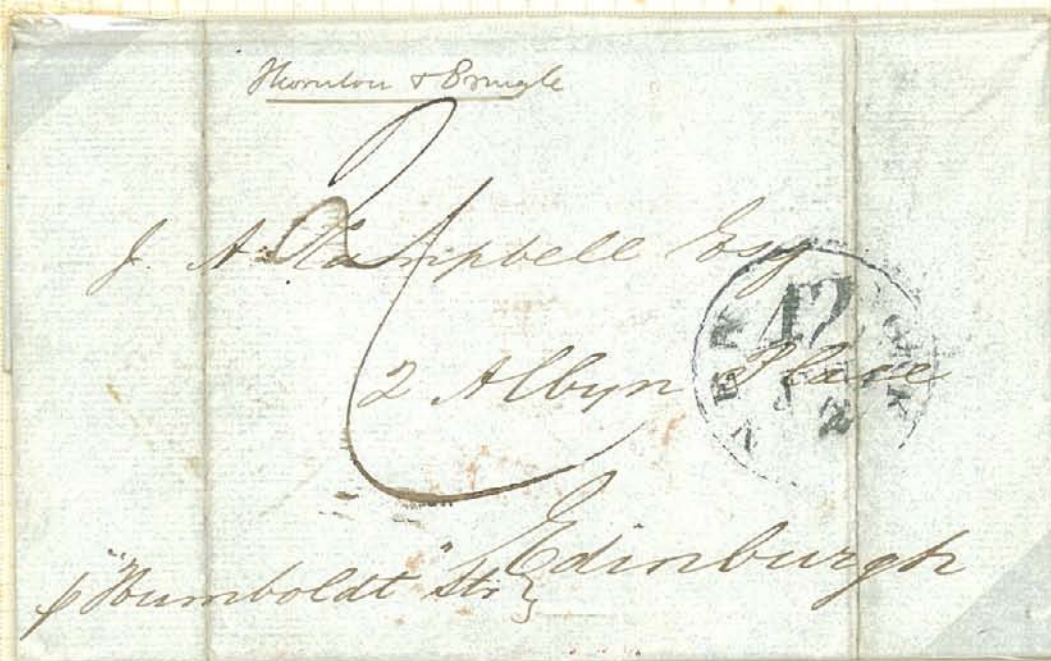 Thornton &
J. A. Campbell Esq
2 Albyn Place
Edinburgh
p "Humboldt" Str
NEW YORK
42